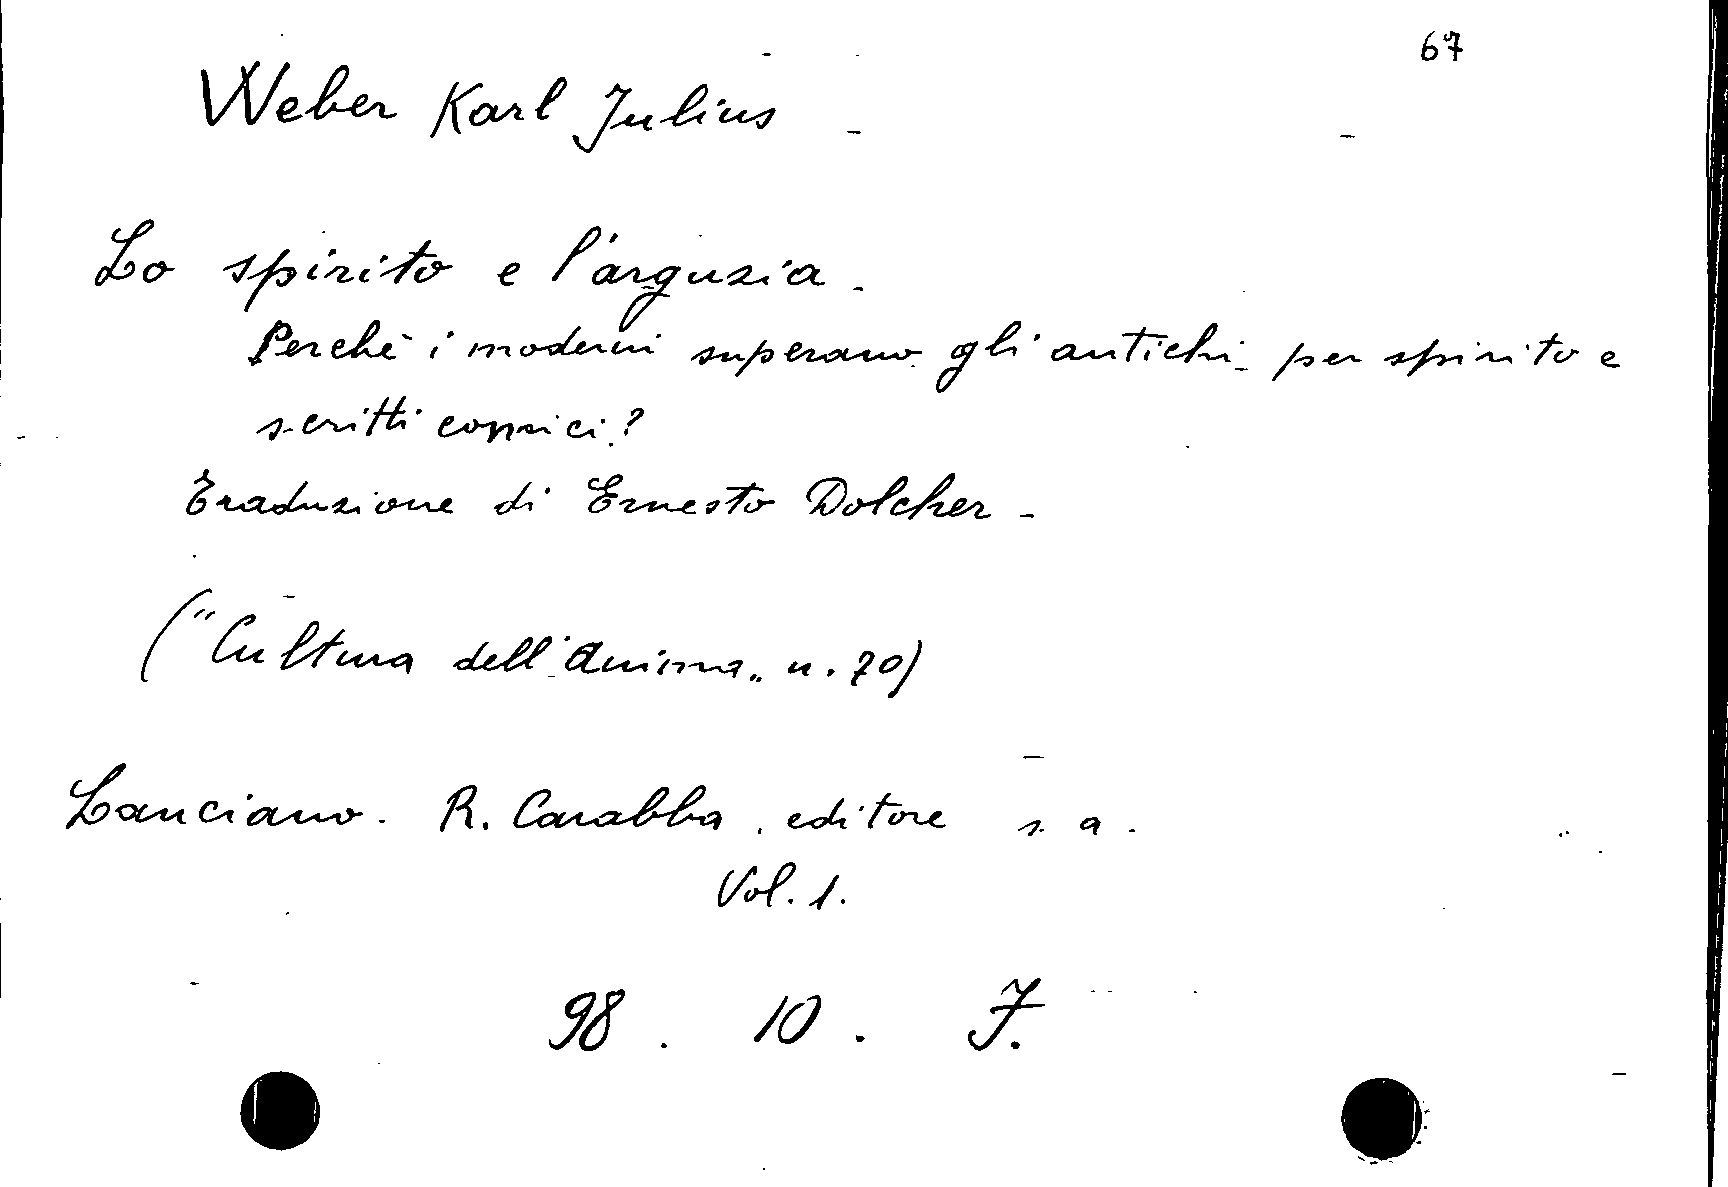 67
Weber Karl Julius -
Lo spirito e l'arguzia.
Perchè i moderni superano gli antichi per spirito e
scritti comici?
Traduzione di Ernesto Dolcher -
("Cultura dell'Anima„ n. 70)
Lanciano. R. Carabba, editore s a.
Vol. 1.
98. 10. F.